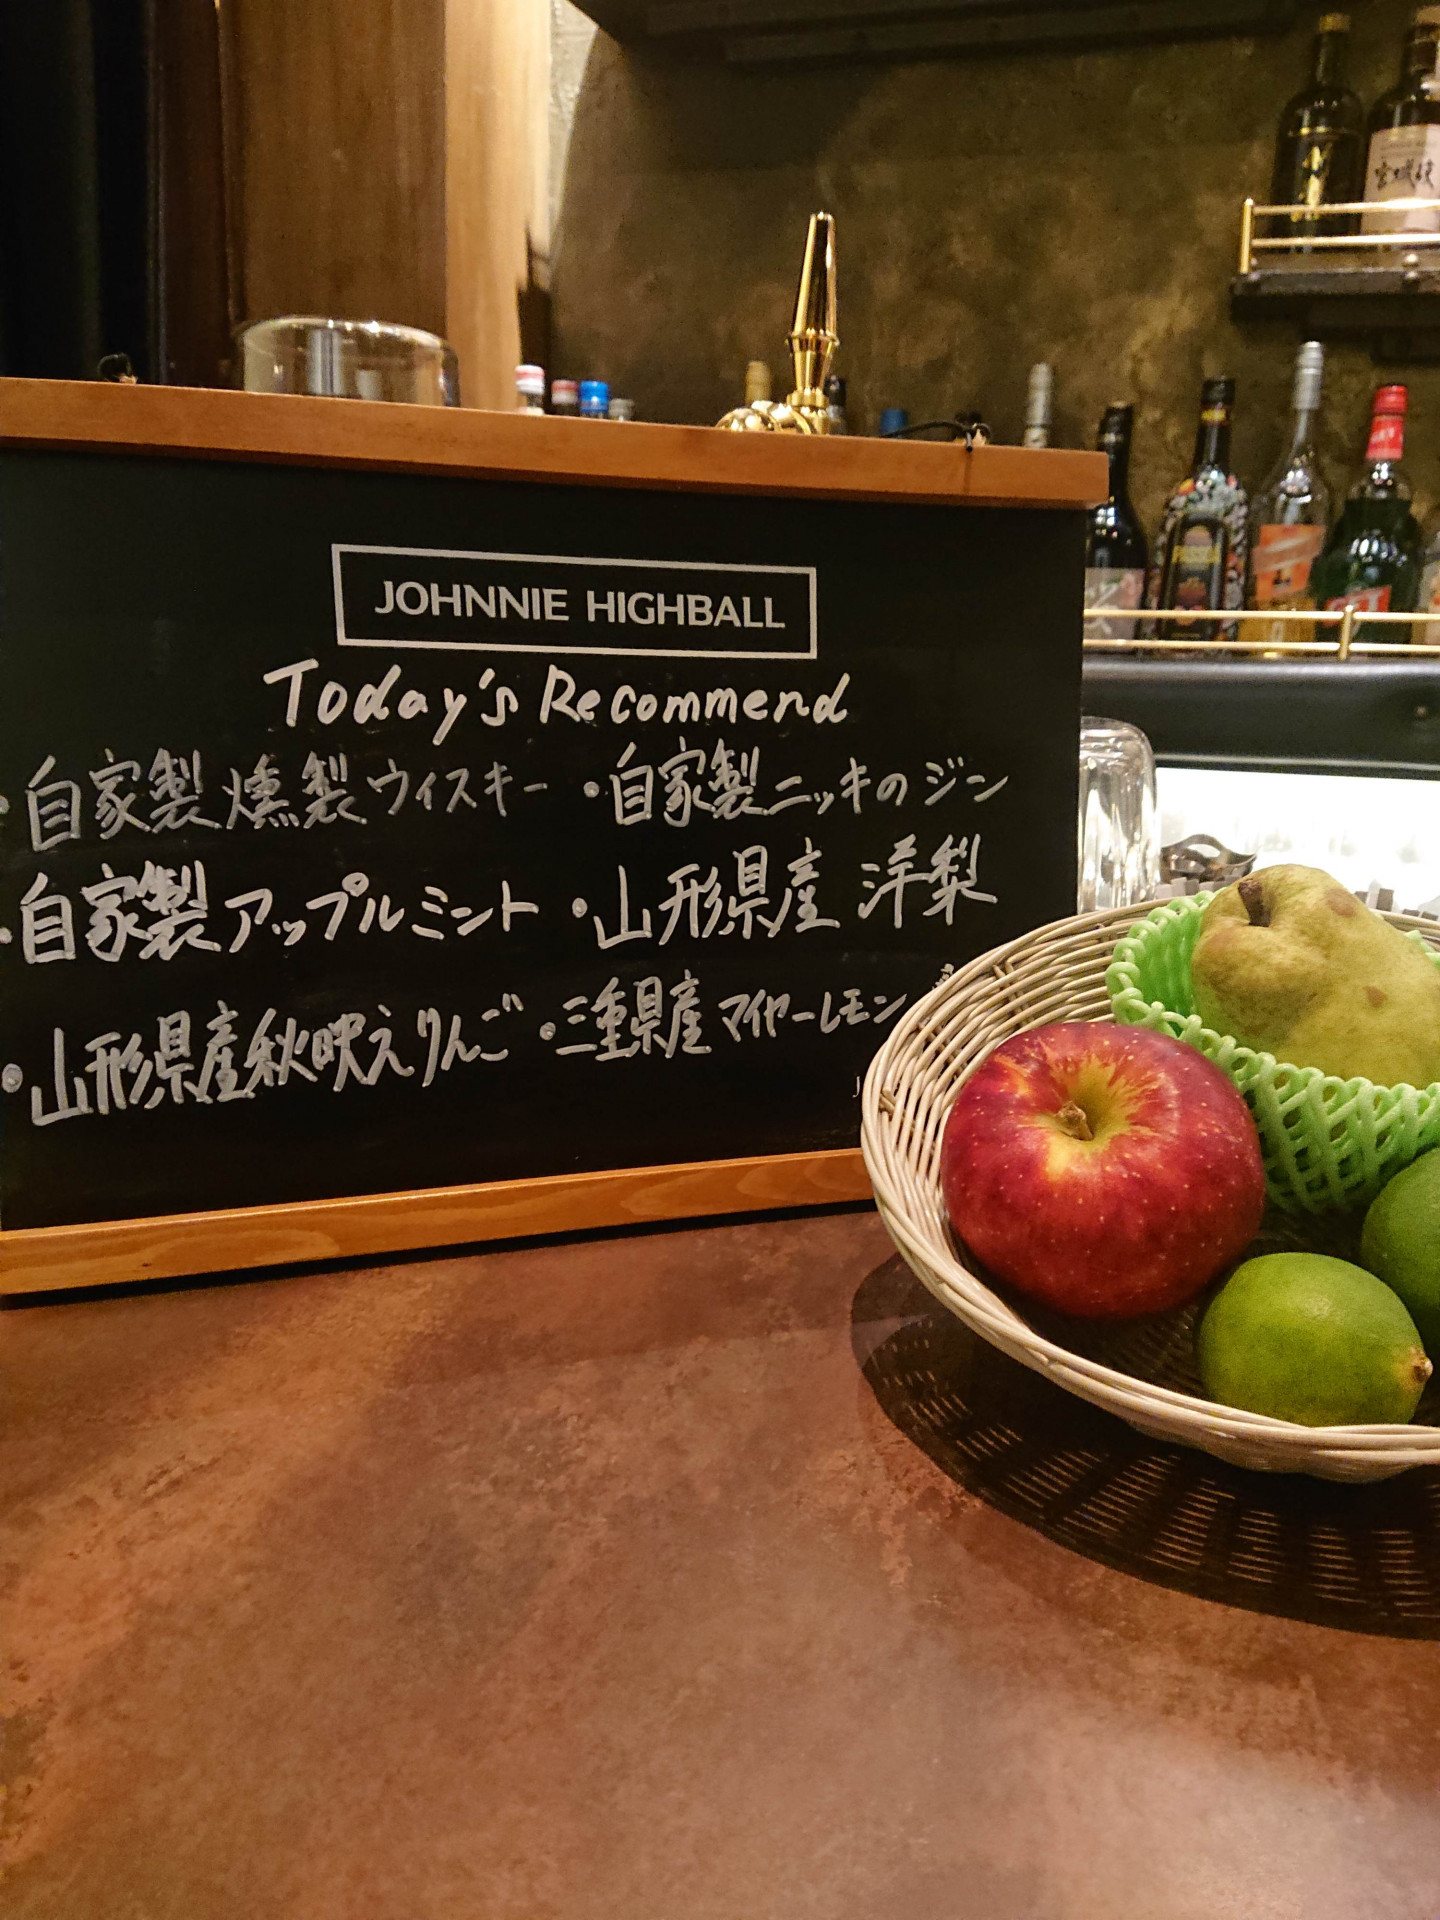 宮城峡
JOHNNIE HIGHBALL
Today's Recommend
・自家製燻製ウィスキー ・自家製ニッキのジン
・自家製アップルミント ・山形県産 洋梨
・山形県産秋映えりんご ・三重県産マイヤーレモン
PASSOÃ
GET